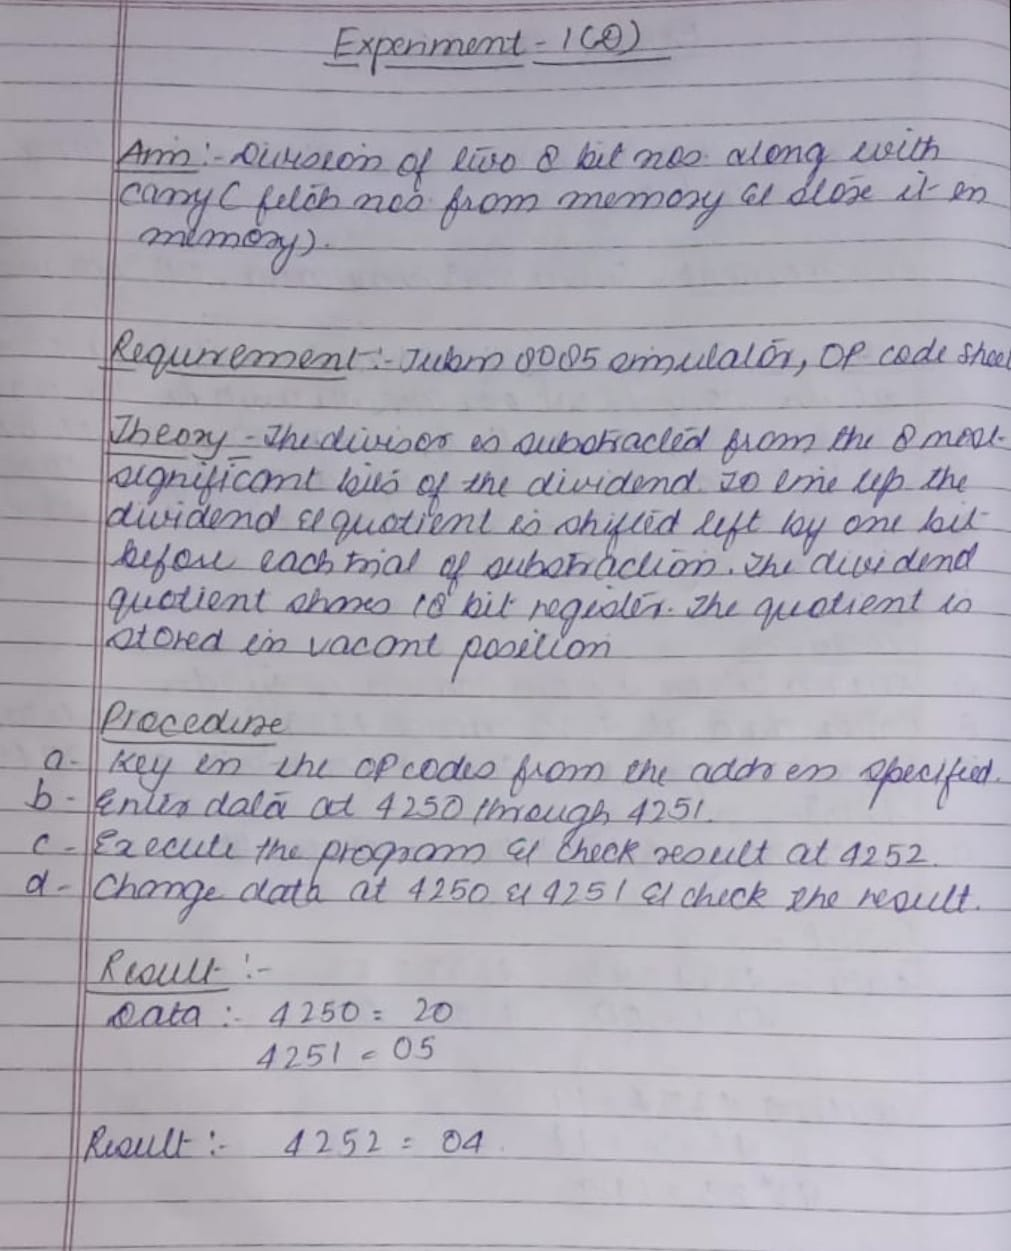 Experiment - 1(8)
Aim :- Division of two 8 bit nos. along with
carry ( fetch nos from memory & store it in
memory).
Requirement :- Jubin 8085 simulator, OP code Sheet
Theory - The divisor is substracted from the 8 most
significant bits of the dividend. To line up the
dividend & quotient is shifted left by one bit
before each trial of substraction. The dividend
quotient shares 16 bit register. The quotient is
stored in vacant position
Procedure
a- Key in the opcodes from the address specified.
b- Enter data at 4250 through 4251.
c- Execute the program & check result at 4252.
d- Change data at 4250 & 4251 & check the result.
Result :-
Data :- 4250 = 20
4251 = 05
Result :- 4252 = 04